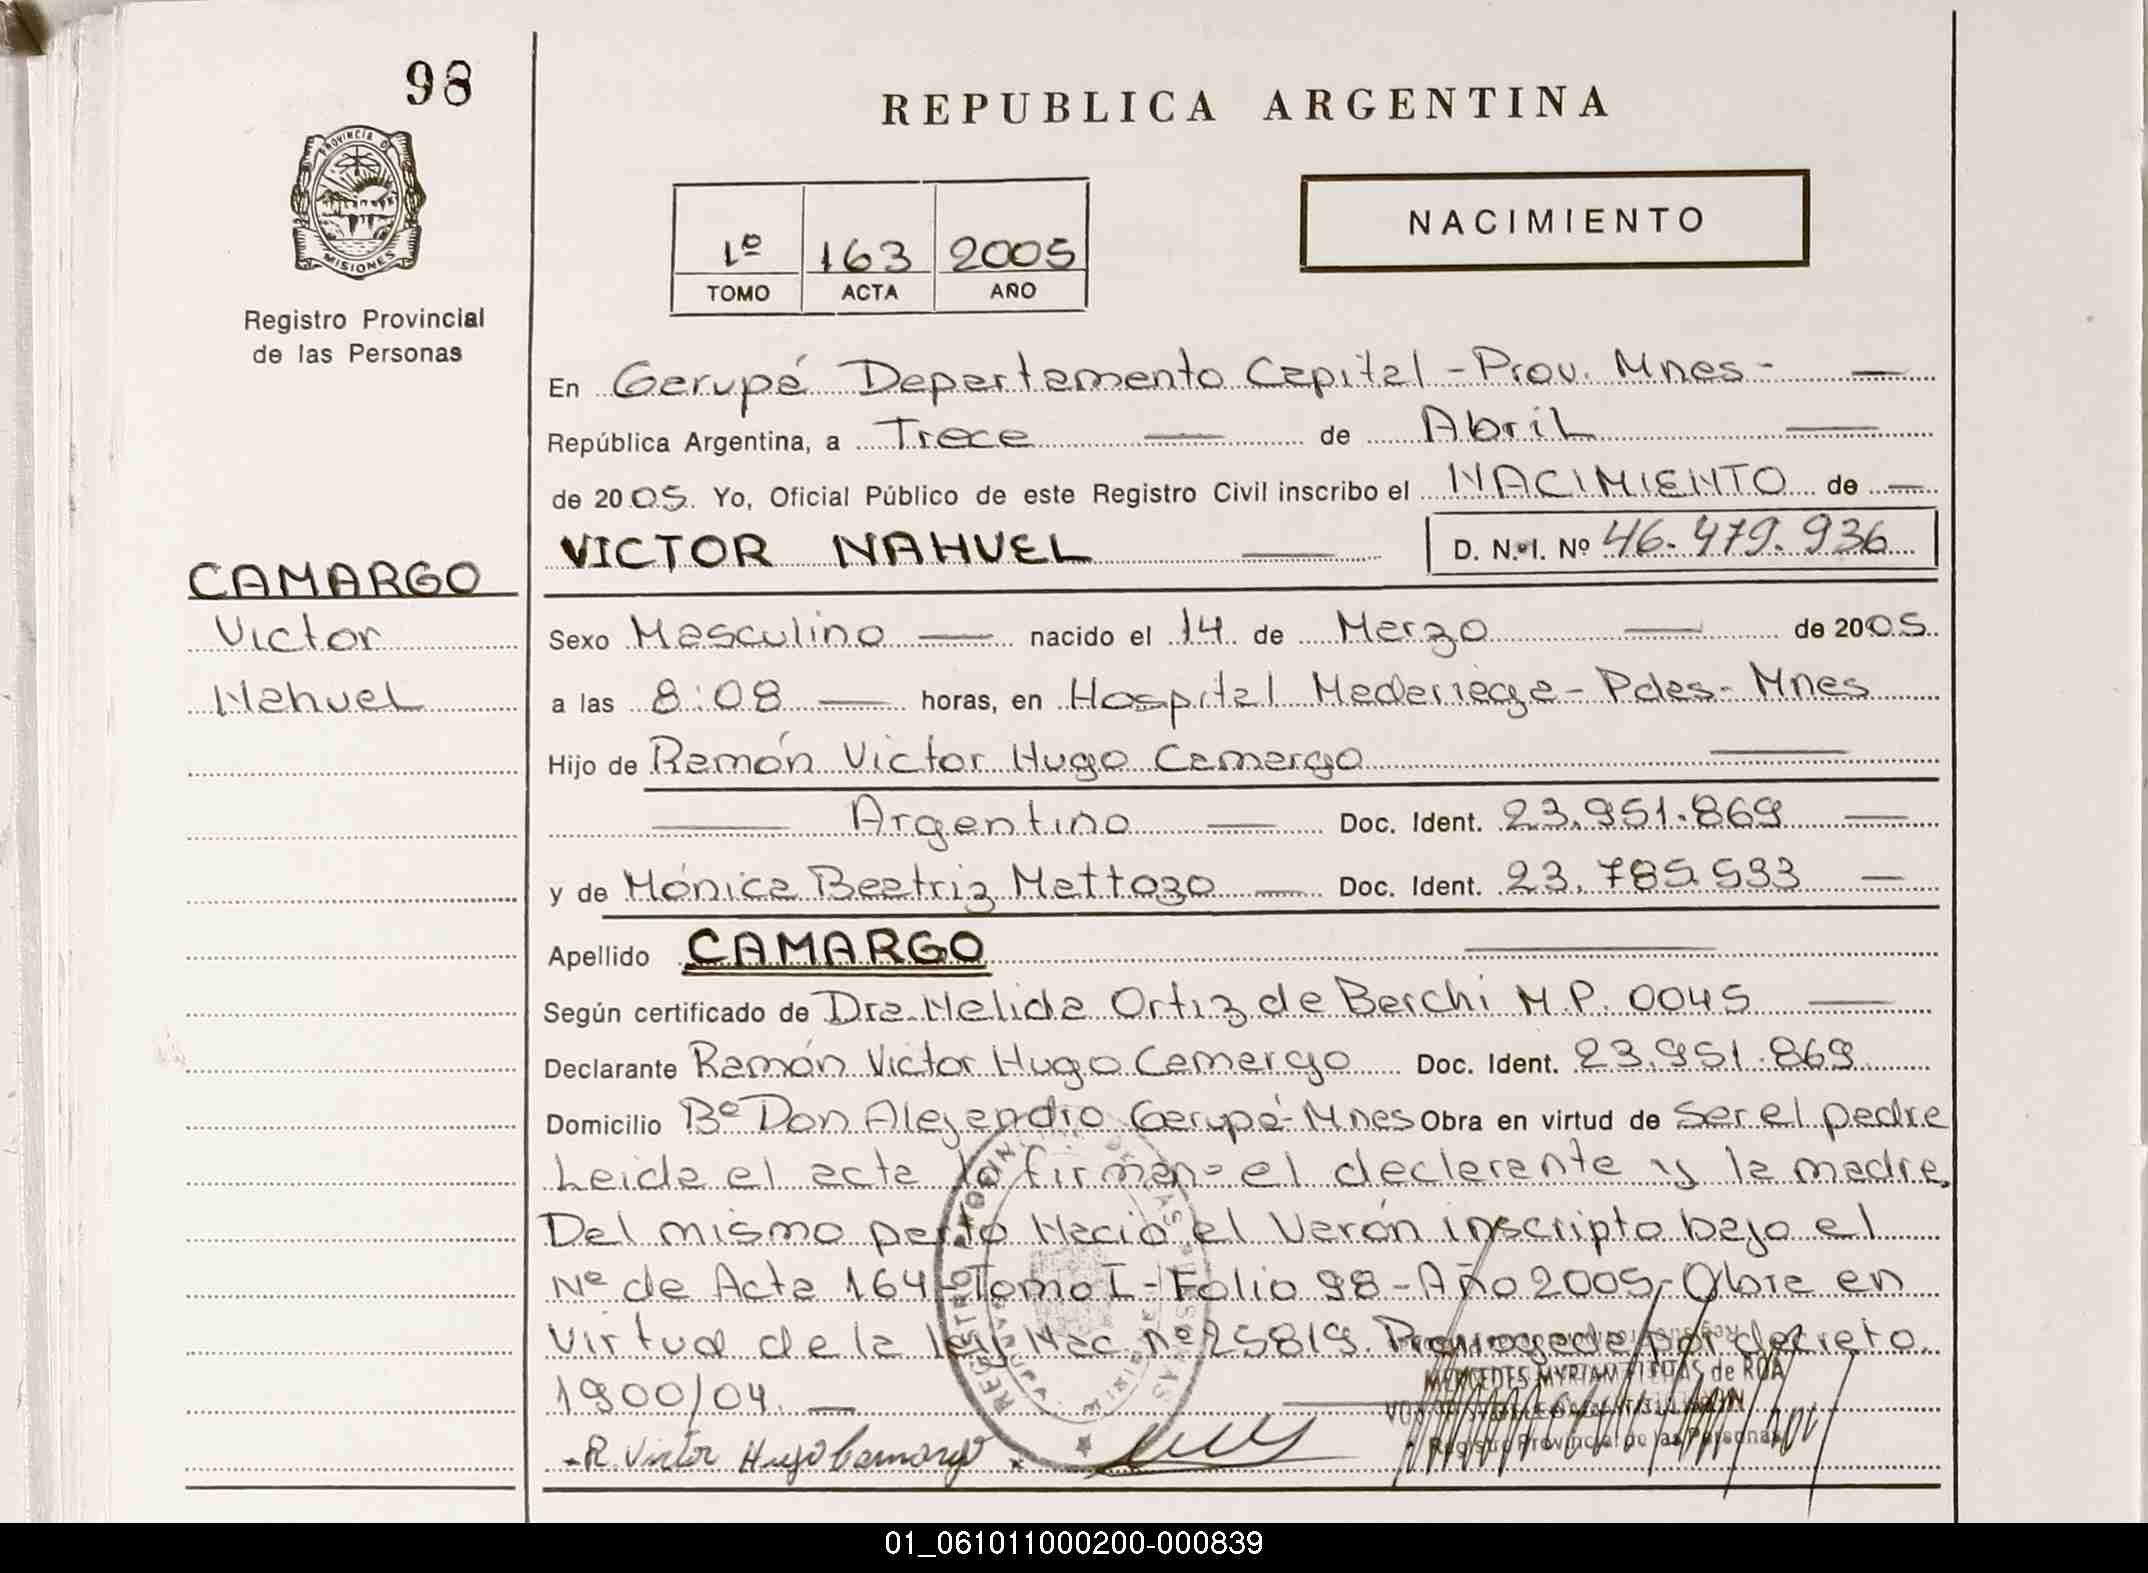 98
REPUBLICA ARGENTINA
PROVINCIA D
MISIONES
Registro Provincial
de las Personas
NACIMIENTO
1º 163 2005
TOMO ACTA AÑO
En Garupá Departamento Capital - Prov. Mnes -
República Argentina, a Trece de Abril
de 2005. Yo, Oficial Público de este Registro Civil inscribo el NACIMIENTO de
VICTOR NAHUEL D. N. I. Nº 46.479.936
CAMARGO
Victor
Nahuel
Sexo Masculino nacido el 14 de Marzo de 2005.
a las 8:08 horas, en Hospital Madariaga - Pdas - Mnes
Hijo de Ramón Victor Hugo Camargo
Argentino Doc. Ident. 23.951.869
y de Mónica Beatriz Mattozo Doc. Ident. 23.785.533
Apellido CAMARGO
Según certificado de Dra. Nelida Ortiz de Barchi M.P. 0045
Declarante Ramón Victor Hugo Camargo Doc. Ident. 23.951.869
Domicilio Bº Don Alejandro Garupá - Mnes Obra en virtud de Ser el padre
Leida el acta la firman = el declarante y la madre.
Del mismo parto Nació el Varón inscripto bajo el
Nº de Acta 164 - Tomo I - Folio 98 - Año 2005 - Obra en
Virtud de la ley Nac. nº 25819. Prorrogada por decreto
1900/04.
R. Victor Hugo Camargo
MERCEDES MYRIAM de ROA
Registro Provincial de las Personas
01_061011000200-000839